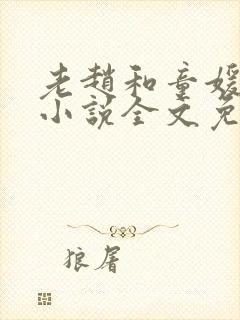 老趙和童媛
小說全文免
狼屠